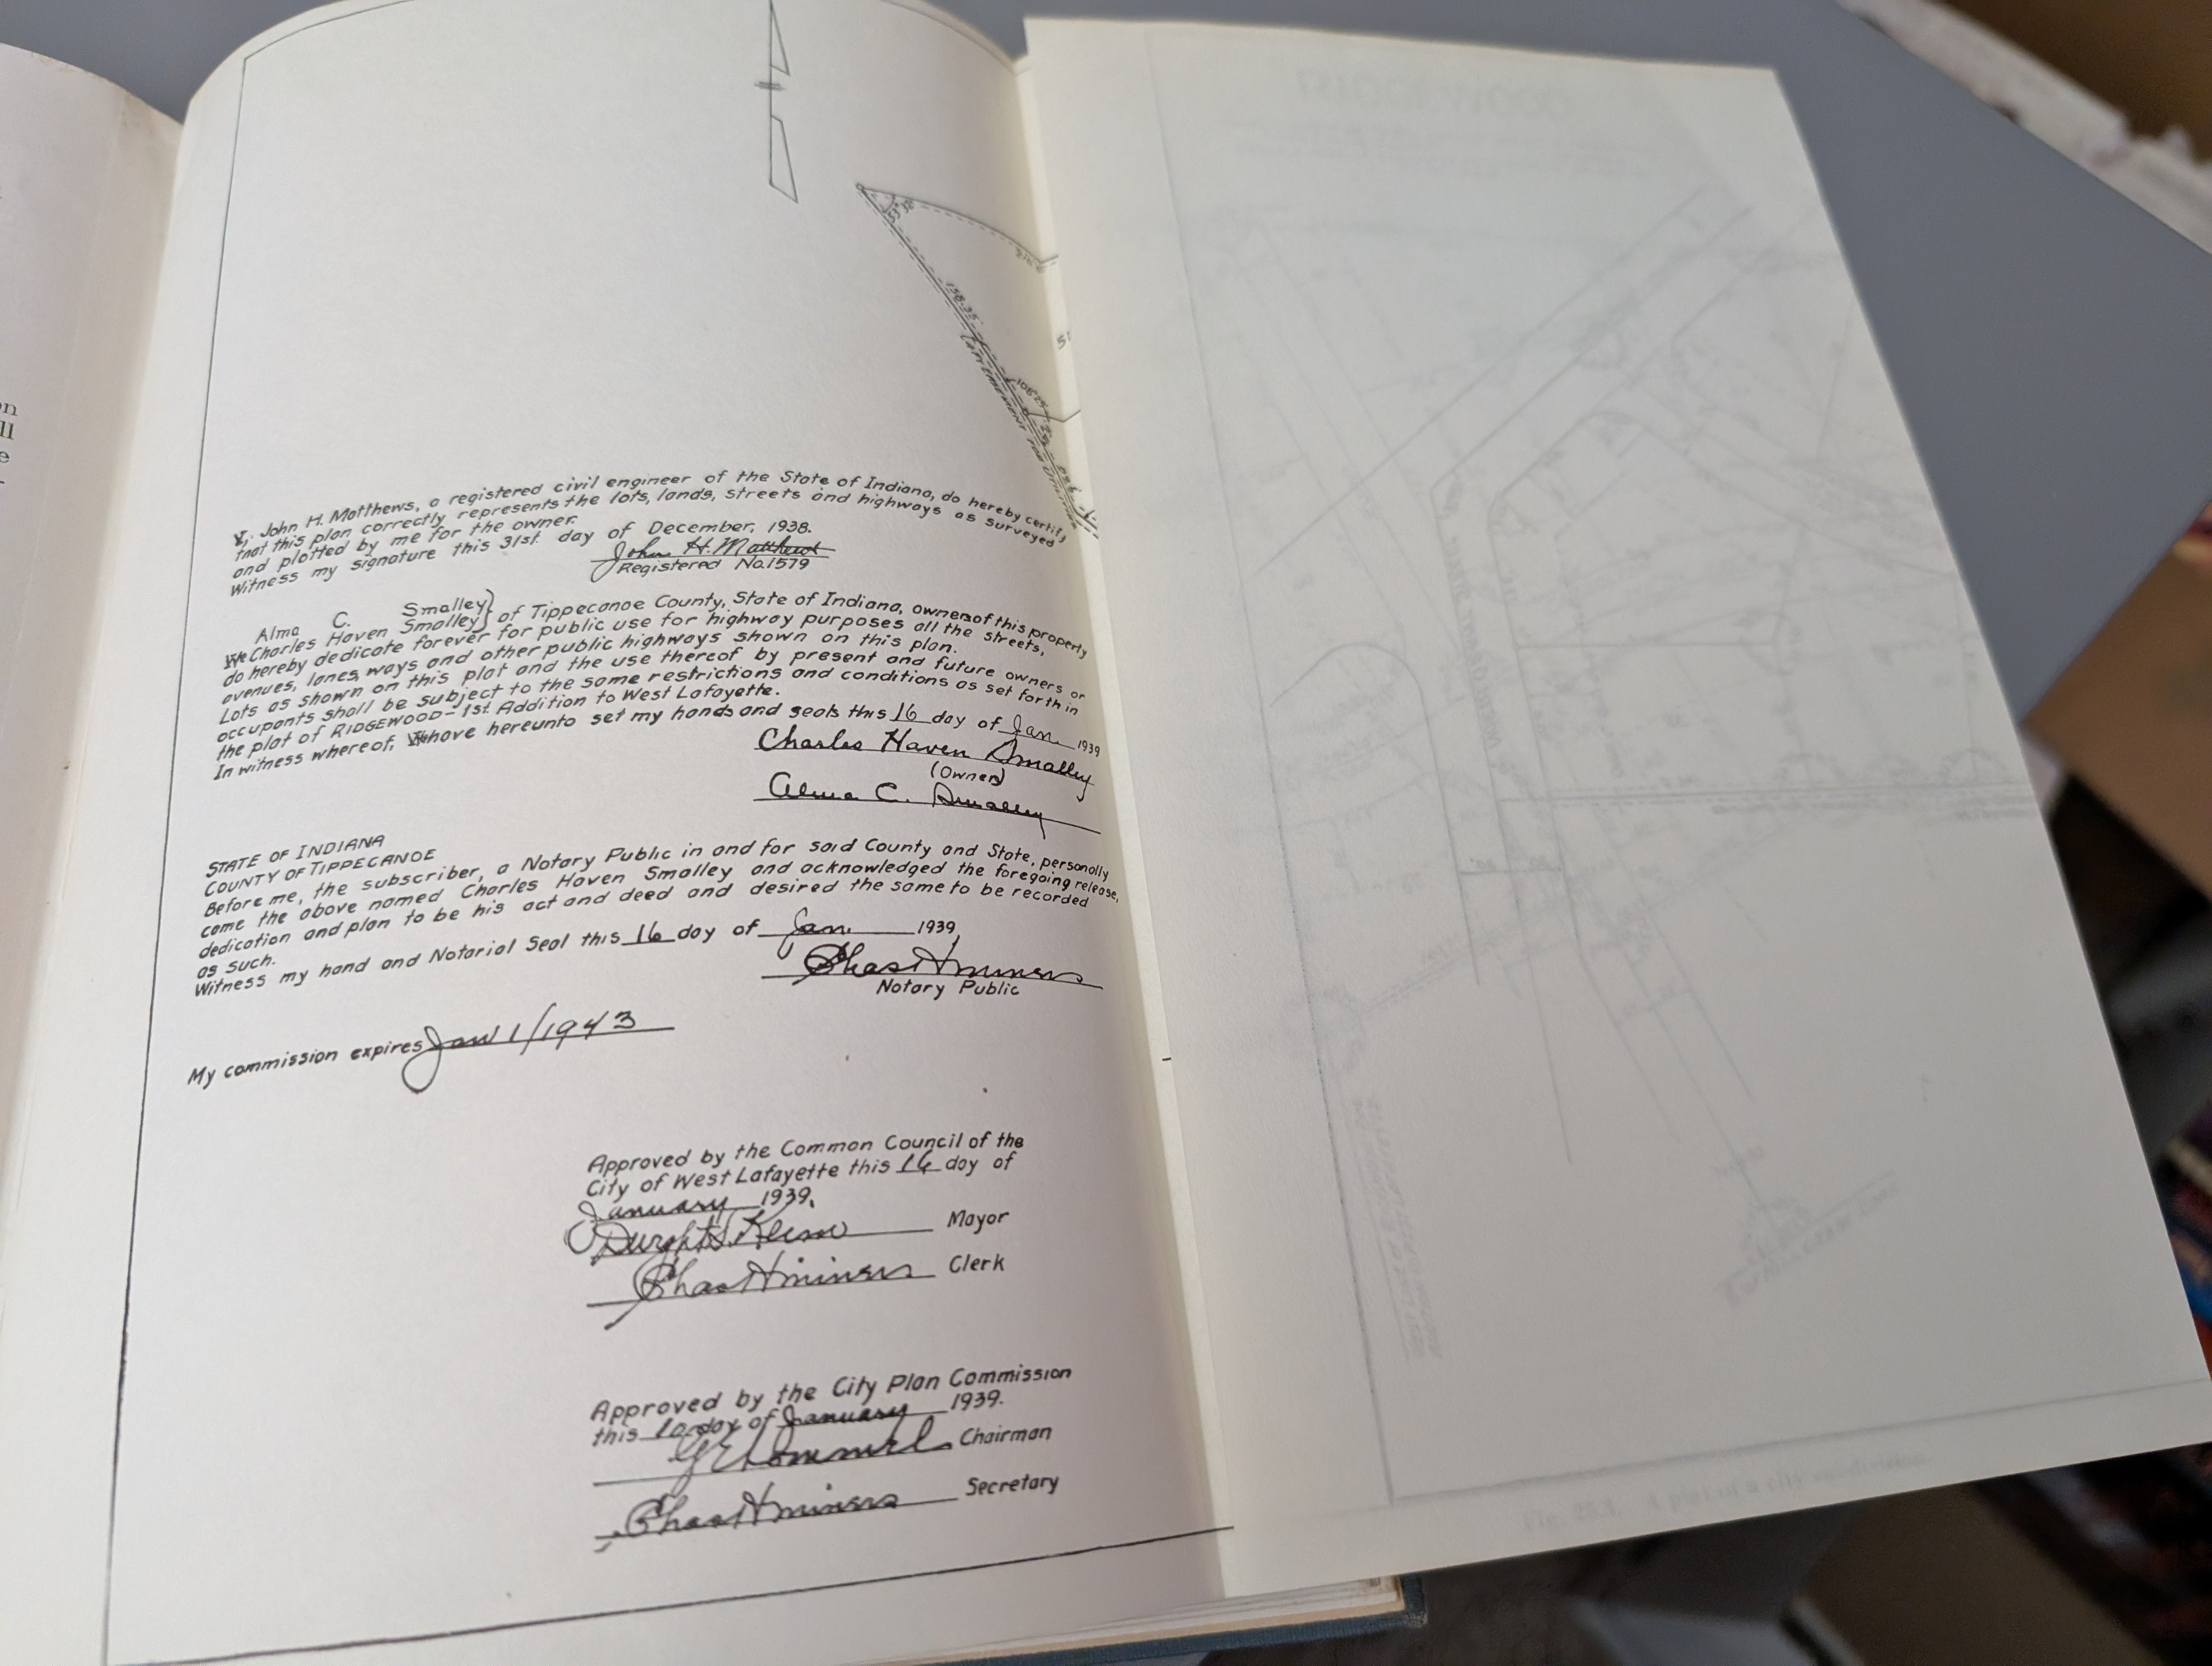 on
ll
e
53°32'
158.35'
51
108°25'
I, John H. Matthews, a registered civil engineer of the State of Indiana, do hereby certify
that this plan correctly represents the lots, lands, streets and highways as surveyed
and plotted by me for the owner.
Witness my signature this 31st. day of December, 1938.
John H. Matthews
Registered No.1579
Alma C. Smalley
We Charles Haven Smalley of Tippecanoe County, State of Indiana, owners of this property
do hereby dedicate forever for public use for highway purposes all the streets,
avenues, lanes, ways and other public highways shown on this plan.
Lots as shown on this plat and the use thereof by present and future owners or
occupants shall be subject to the same restrictions and conditions as set forth in
the plat of RIDGEWOOD-1st. Addition to West Lafayette.
In witness whereof, We have hereunto set my hands and seals this 16 day of Jan. 1939
Charles Haven Smalley
(Owners)
Alma C. Smalley
STATE OF INDIANA
COUNTY OF TIPPECANOE
Before me, the subscriber, a Notary Public in and for said County and State, personally
came the above named Charles Haven Smalley and acknowledged the foregoing release,
dedication and plan to be his act and deed and desired the same to be recorded
as such.
Witness my hand and Notarial Seal this 16 day of Jan. 1939,
Chas H miners
Notary Public
My commission expires Jan 1/1943
Approved by the Common Council of the
City of West Lafayette this 16 day of
January 1939.
Mayor
Chas H miners Clerk
Approved by the City Plan Commission
this 10 day of January 1939.
Chairman
Chas H miners Secretary